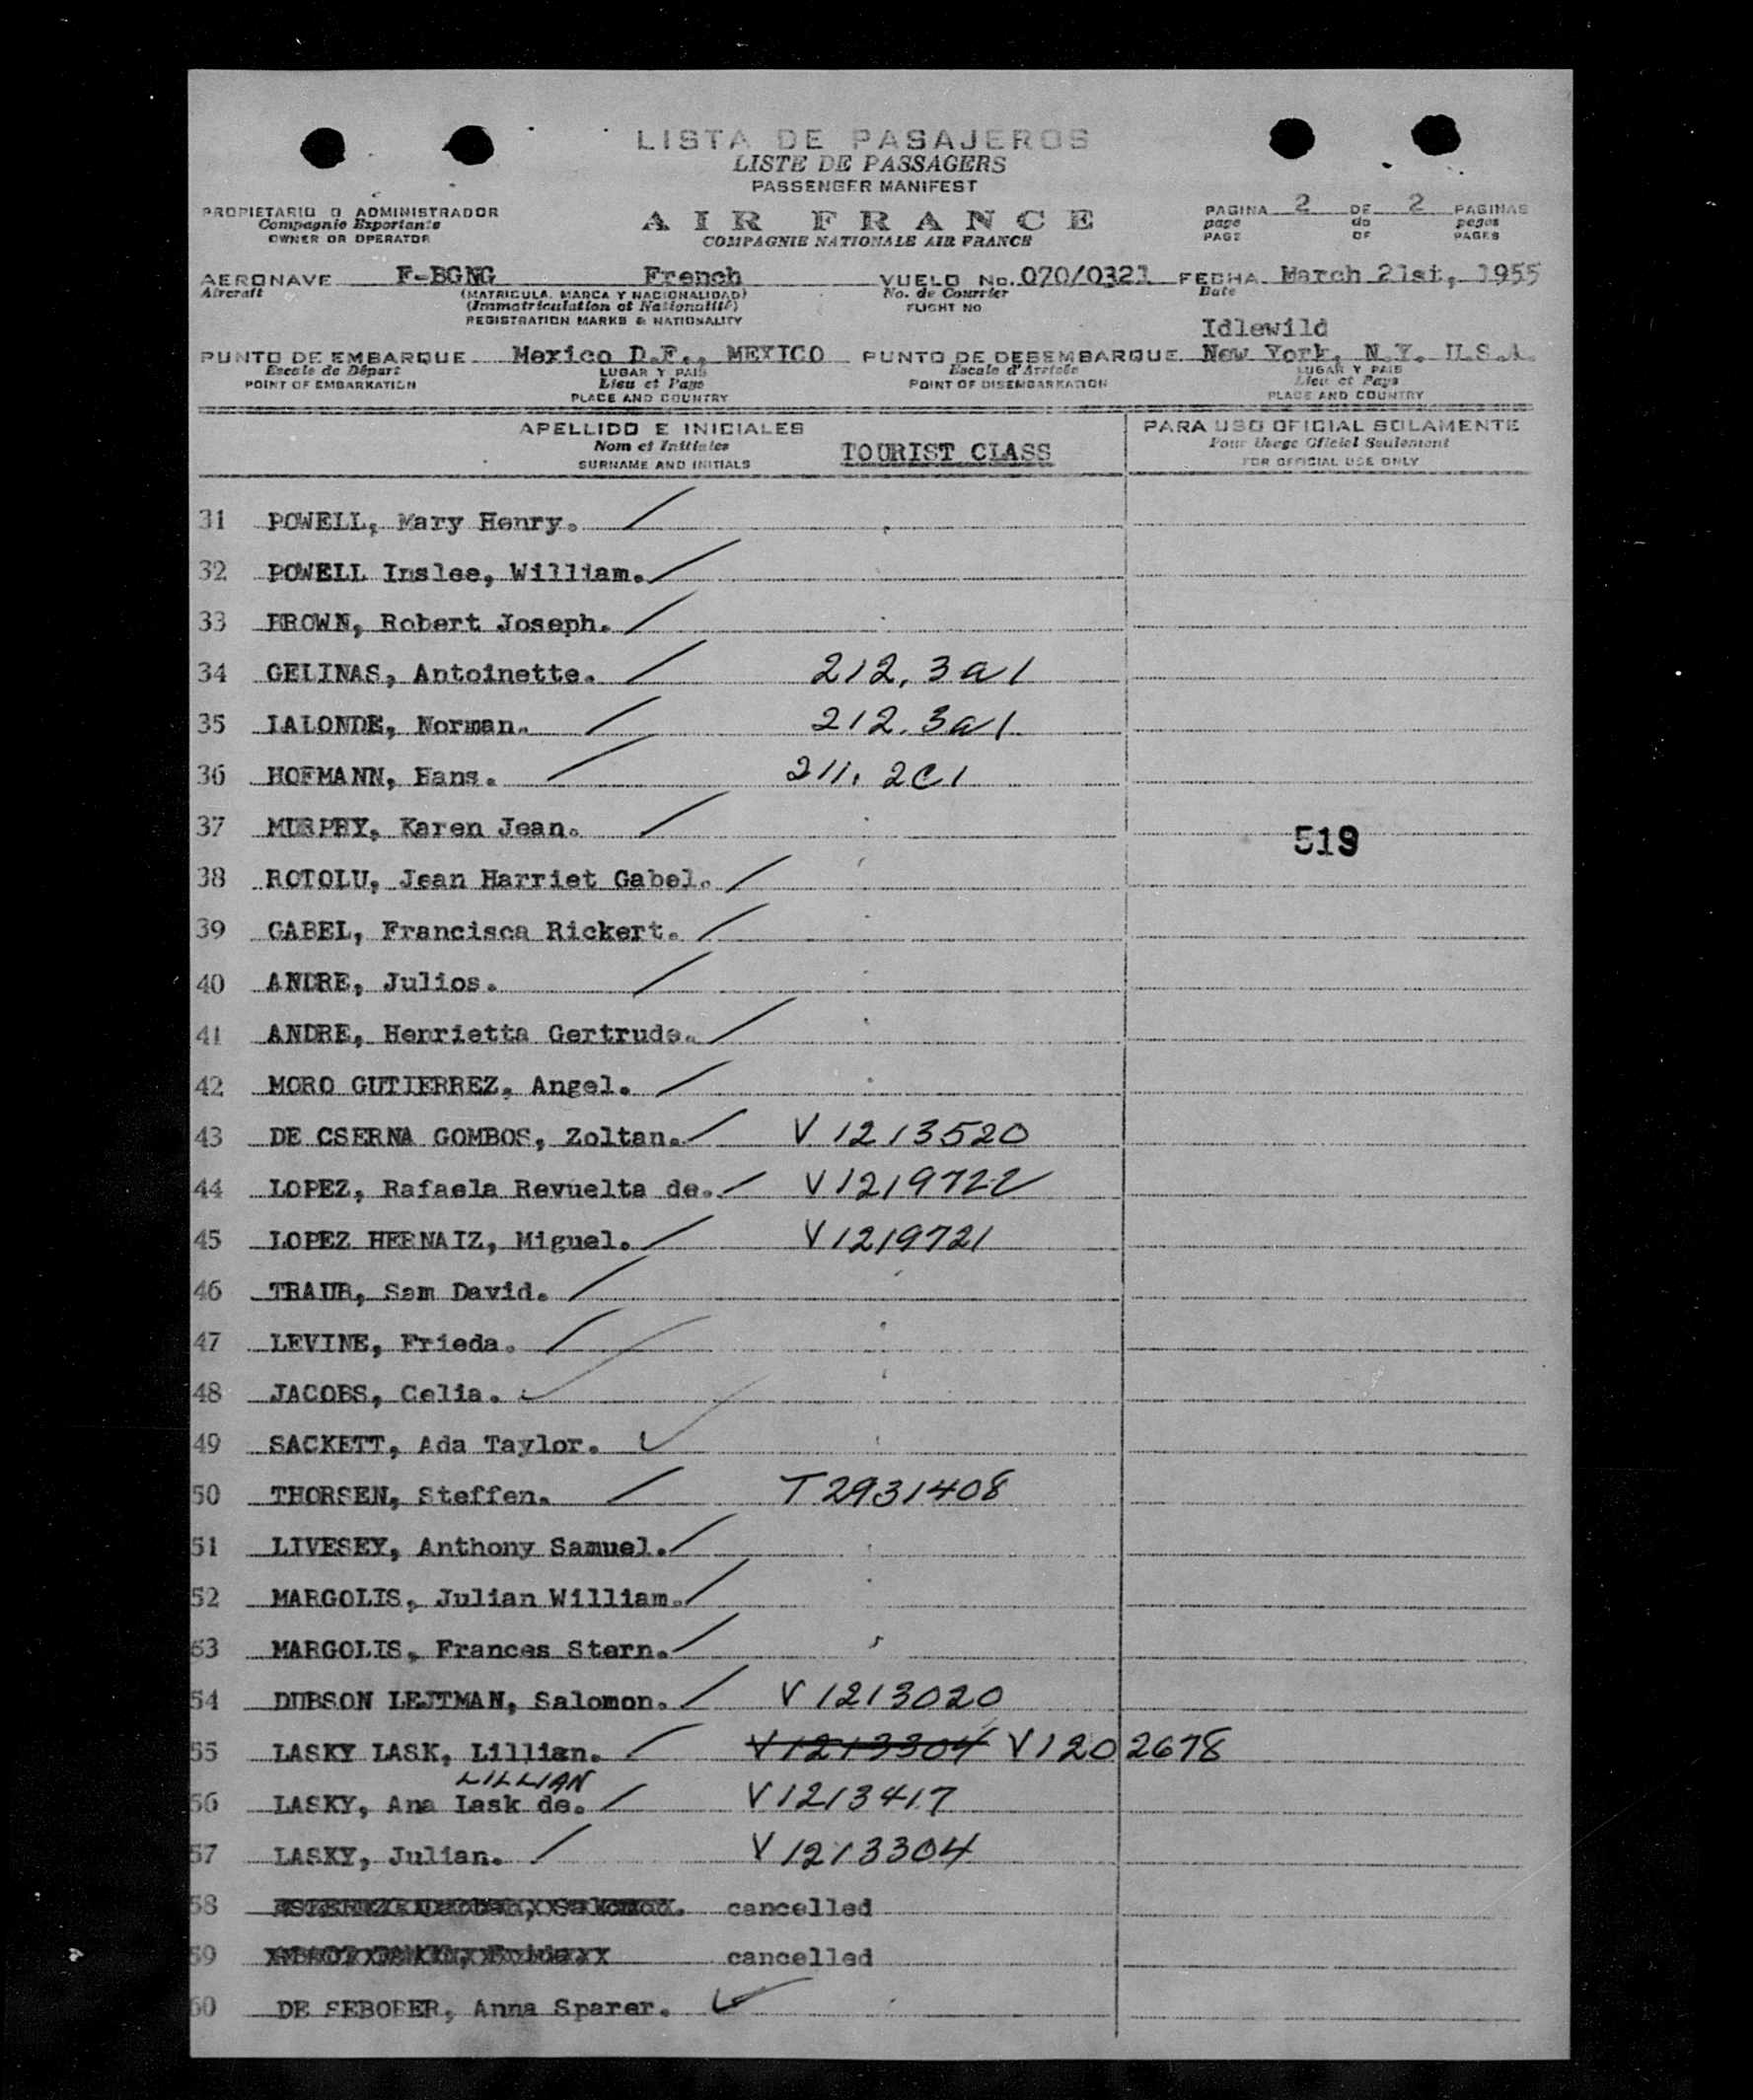 LISTA DE PASAJEROS
LISTE DE PASSAGERS
PASSENGER MANIFEST
PROPIETARIO O ADMINISTRADOR
Compagnie Exportante
OWNER OR OPERATOR
AIR FRANCE
COMPAGNIE NATIONALE AIR FRANCE
PAGINA 2 DE 2 PAGINAS
page de pages
PAGE OF PAGES
AERONAVE F-BGNG French VUELO No. 070/0321 FECHA March 21st, 1955
Aircraft (MATRICULA, MARCA Y NACIONALIDAD) No. de Courrier Date
(Immatriculation et Nationalité) FLIGHT NO
REGISTRATION MARKS & NATIONALITY
Idlewild
PUNTO DE EMBARQUE Mexico D.F., MEXICO PUNTO DE DESEMBARQUE New York, N.Y. U.S.A.
Escale de Départ LUGAR Y PAIS Escale d'Arrivée LUGAR Y PAIS
POINT OF EMBARKATION Lieu et Pays POINT OF DISEMBARKATION Lieu et Pays
PLACE AND COUNTRY PLACE AND COUNTRY
APELLIDO E INICIALES PARA USO OFICIAL SOLAMENTE
Nom et Initiales TOURIST CLASS Pour Usage Officiel Seulement
SURNAME AND INITIALS FOR OFFICIAL USE ONLY
31 POWELL, Mary Henry.
32 POWELL Inslee, William.
33 BROWN, Robert Joseph.
34 GELINAS, Antoinette. 212.3a1
35 LALONDE, Norman. 212.3a1
36 HOFMANN, Hans. 211.2C1
37 MURPHY, Karen Jean.
519
38 ROTOLU, Jean Harriet Gabel.
39 GABEL, Francisca Rickert.
40 ANDRE, Julios.
41 ANDRE, Henrietta Gertrude.
42 MORO GUTIERREZ, Angel.
43 DE CSERNA GOMBOS, Zoltan. V1213520
44 LOPEZ, Rafaela Revuelta de. V1219722
45 LOPEZ HERNAIZ, Miguel. V1219721
46 TRAUB, Sam David.
47 LEVINE, Frieda.
48 JACOBS, Celia.
49 SACKETT, Ada Taylor.
50 THORSEN, Steffen. T2931408
51 LIVESEY, Anthony Samuel.
52 MARGOLIS, Julian William.
53 MARGOLIS, Frances Stern.
54 DUBSON LEJTMAN, Salomon. V1213020
55 LASKY LASK, Lillian. V1213304 V1202678
LILLIAN
56 LASKY, Ana Lask de. V1213417
57 LASKY, Julian. V1213304
58 cancelled
59 cancelled
60 DE SEBOBER, Anna Sparer.